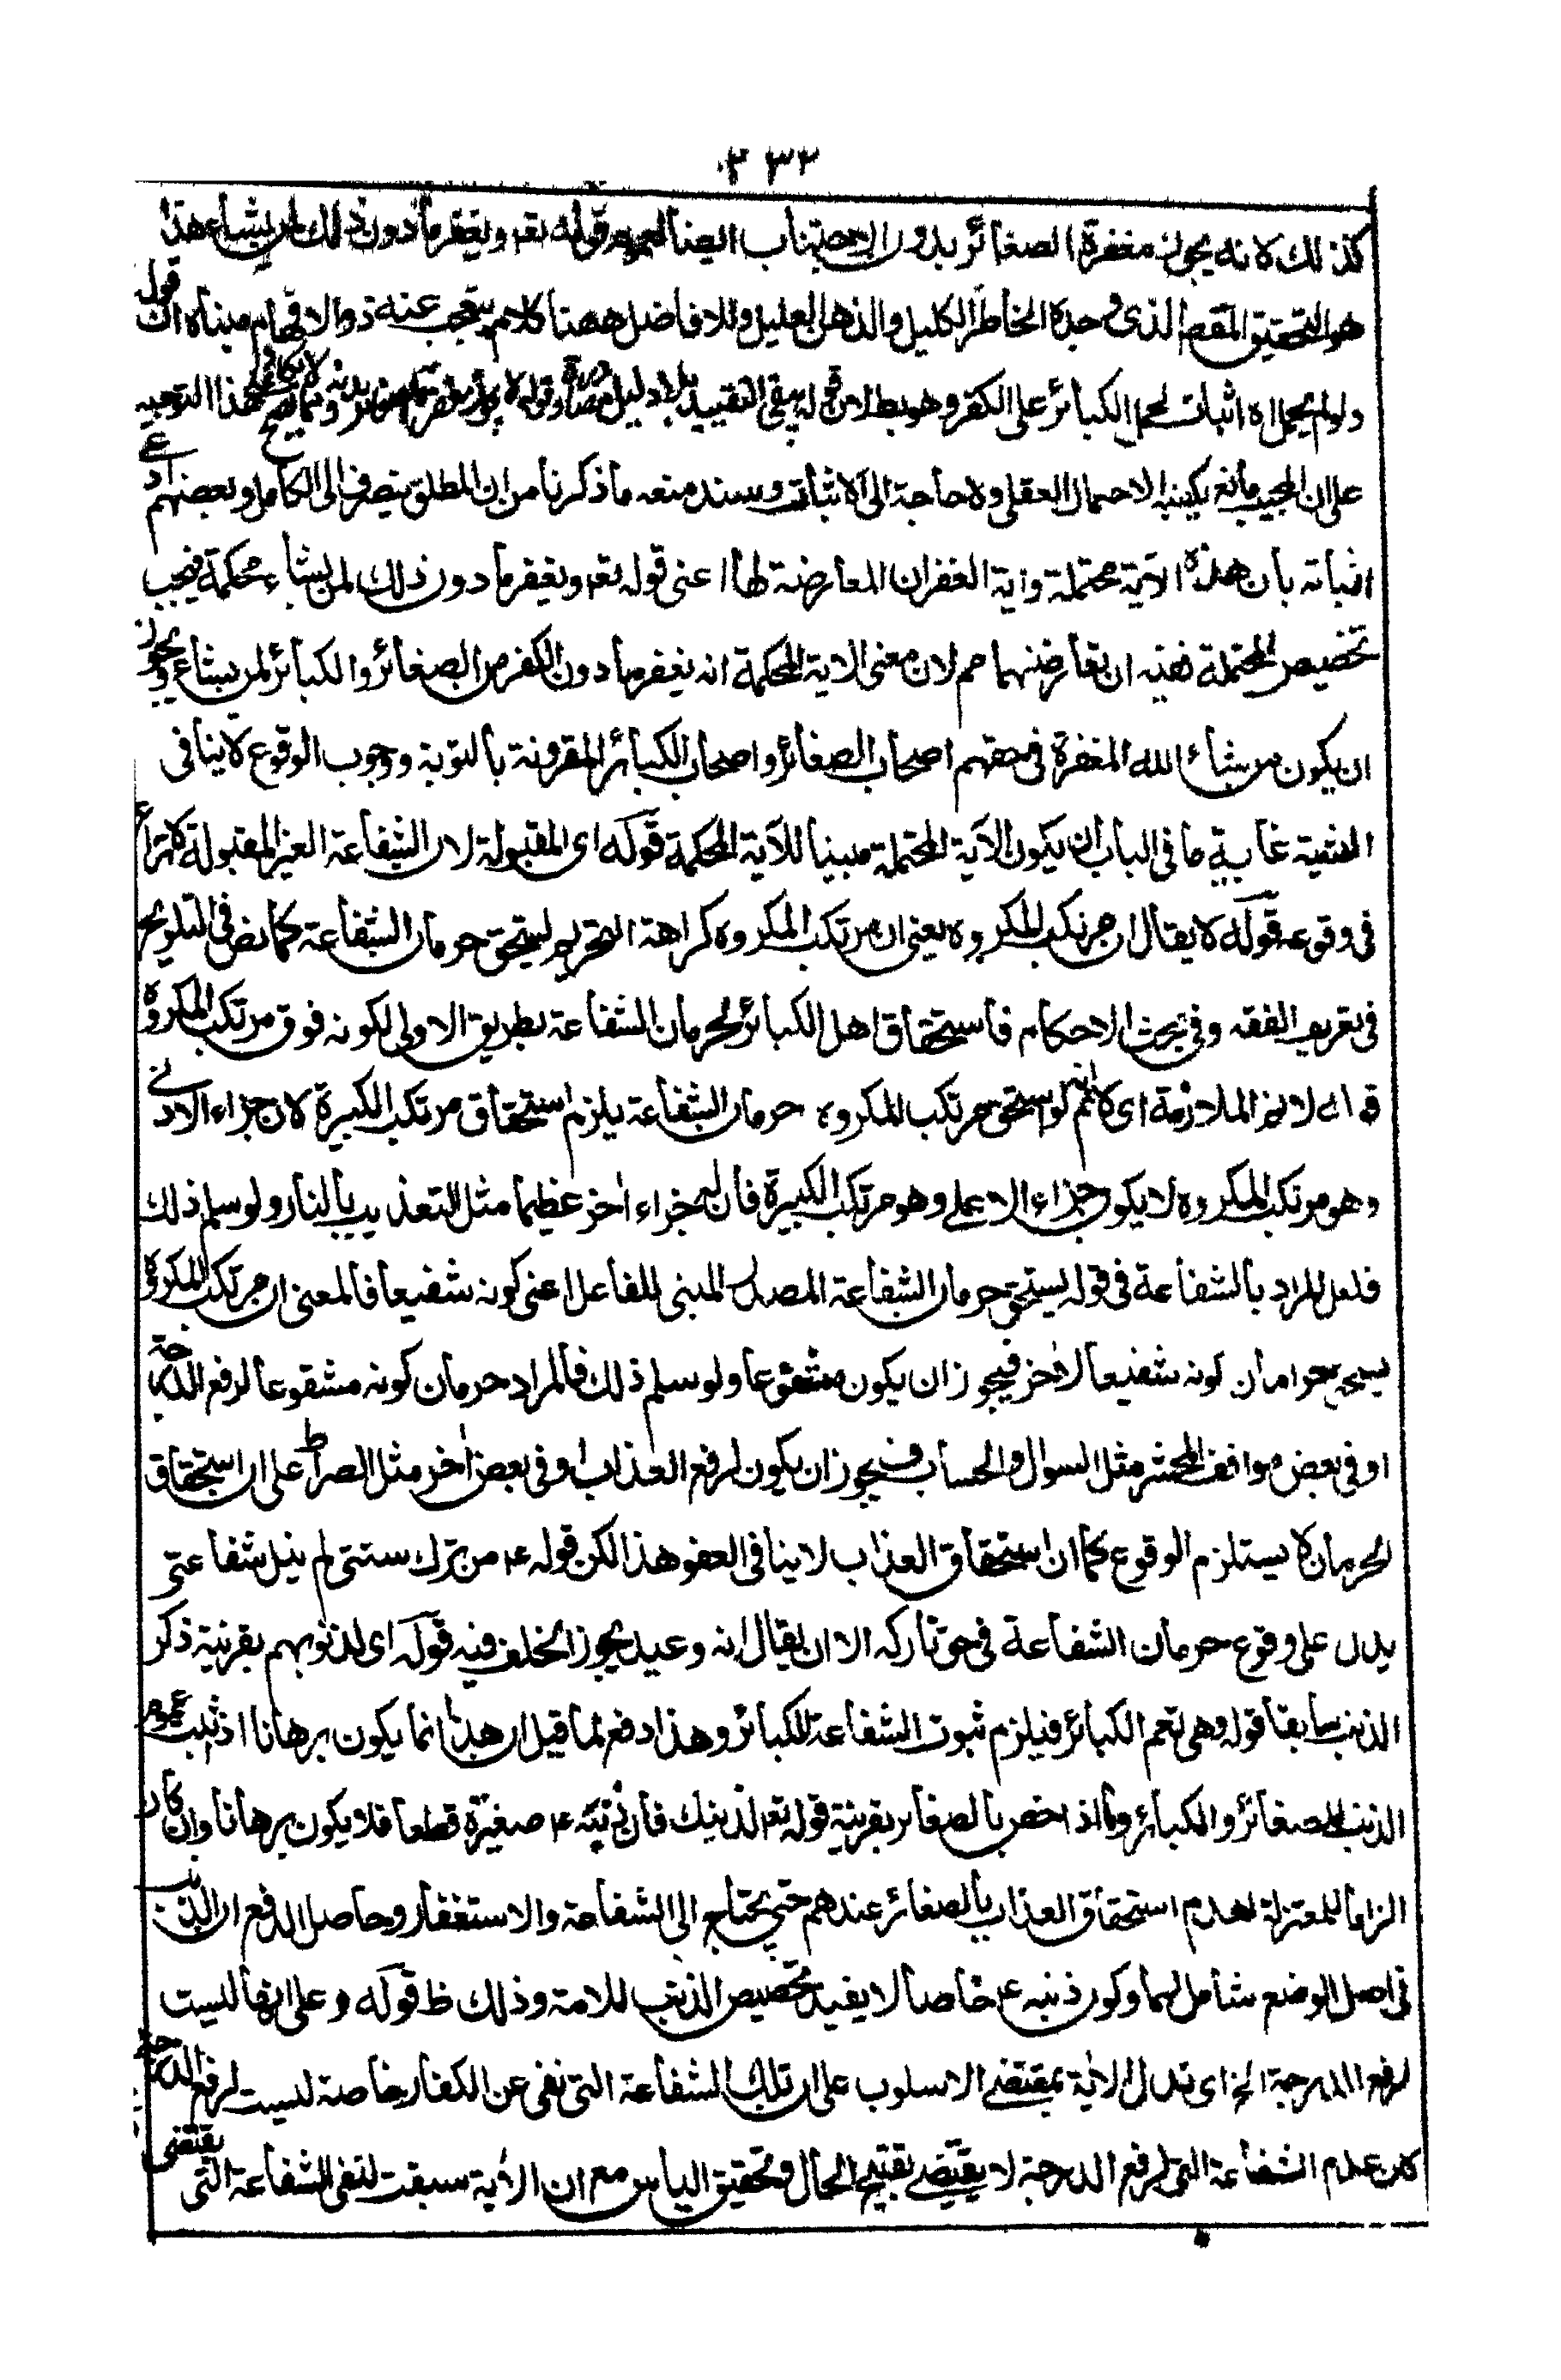 ٢٣٢
كذلك لانه يجوز مغفرة الصغائر بدون الاجتناب ايضا لعموم قوله تعم ويغفر ما دون ذلك لمن يشاء هذا
هو التحقيق الذى وجده الخاطر الكليل والذهن العليل وللافاضل ههنا كلام يتعجب عنه ذوا الافهام مبناه ان قول
ولو لم يحمل اه اثبات لحمل الكبائر على الكفر وهو بط لان قوله يبقى التقييد بلا دليل هذا التوجيه
على ان المجيب مانع يكفيه الاحتمال العقلى ولا حاجة الى الاثبات وسند منعه ما ذكرنا من ان المطلق ينصرف الى الكامل وبعضهم ادعى
اثباته بان هذه الاية محتملة واية الغفران المعارضة لها اعنى قوله تعم ويغفر ما دون ذلك لمن يشاء محكمة فيجب
تخصيص المحتملة ففيه ان تعارضهما مم لان معنى الاية المحكمة انه يغفر ما دون الكفر من الصغائر والكبائر لمن يشاء ويجوز
ان يكون من يشاء الله المغفرة فى حقهم اصحاب الصغائر واصحاب الكبائر المقرونة بالتوبة ووجوب الوقوع لا ينافى
المشية غاية ما فى الباب ان يكون الآية المحتملة مبينا للآية المحكمة قوله اى المقبولة لان الشفاعة الغير المقبولة لا نزاع
فى وقوعه قوله لا يقال ان مرتكب المكروه يعنى ان مرتكب المكروه كراهة التحريم يستحق حرمان الشفاعة كما نص فى التلويح
فى تعريف الفقه وفى بحث الاحكام فاستحقاق اهل الكبائر لحرمان الشفاعة بطريق الاولى لكونه فوق مرتكب المكروه
قوله لانم الملازمة اى لانم انه لو استحق مرتكب المكروه حرمان الشفاعة يلزم استحقاق مرتكب الكبيرة لان جزاء الادنى
وهو مرتكب المكروه لا يكون جزاء الاعلى وهو مرتكب الكبيرة فان له جزاء اخر عظيما مثل التعذيب بالنار ولو سلم ذلك
فلعل المراد بالشفاعة فى قوله يستحق حرمان الشفاعة المصدر المبنى للفاعل اعنى كونه شفيعا فالمعنى ان مرتكب المكروه
يستحق حرمان كونه شفيعا لاخر فيجوز ان يكون مشفوعا ولو سلم ذلك فالمراد حرمان كونه مشفوعا لرفع الدرجة
او فى بعض مواقف المحشر مثل السوال والحساب فيجوز ان يكون لرفع العذاب او فى بعض اخر مثل الصراط على ان استحقاق
الحرمان لا يستلزم الوقوع كما ان استحقاق العذاب لا ينافى العفو هذا لكن قوله ء من ترك سنتى لم ينل شفاعتى
يدل على وقوع حرمان الشفاعة فى حق تاركه الا ان يقال انه وعيد يجوز الخلف فيه قوله اى لذنوبهم بقرينة ذكر
الذنب سابقا قوله وهى تعم الكبائر فيلزم ثبوت الشفاعة للكبائر وهذا دفع لما قيل ان هذا انما يكون برهانا اذ ثبت عموم
الذنب الصغائر والكبائر واما اذا خص بالصغاير بقرينة قوله تعم لذنبك فان ذنبه ء صغيرة قطعا فلا يكون برهانا وان كان
الزاما للمعتزلة لعدم استحقاق العذاب بالصغائر عندهم حتى يحتاج الى الشفاعة والاستغفار وحاصل الدفع ان الذنب
فى اصل الوضع شامل لهما وكون ذنبه ء خاصا لا يفيد تخصيص الذنب للامة وذلك ظ قوله وعلى انها ليست
لرفع الدرجة الخ اى تدل الاية بمقتضى الاسلوب على ان تلك الشفاعة التى نفى عن الكفار خاصة ليست لرفع الدرجة
لان عدم الشفاعة التى لرفع الدرجة لا يقتضى تقبيح الحال وتحقيق الياس مع ان الاية سيقت لنفى الشفاعة التى يقتضى